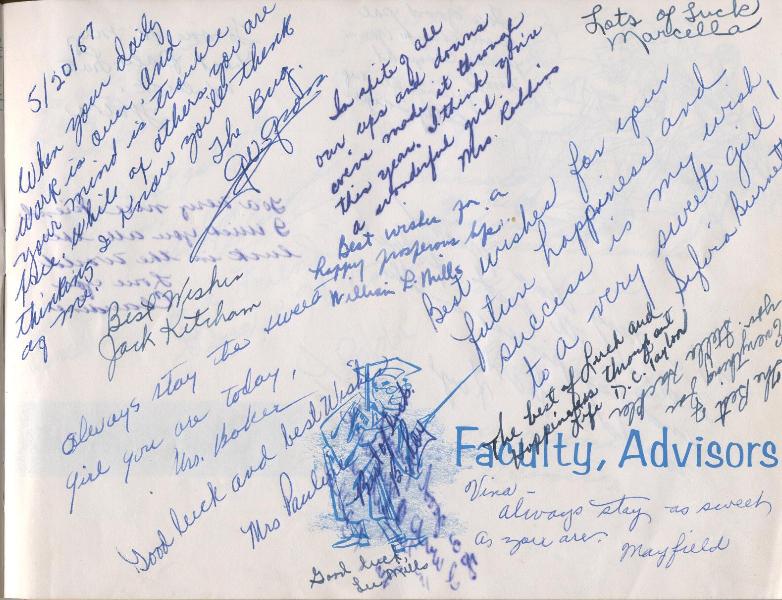 5/20/57
When your daily
work is over, and
your mind is trouble
free, while of others you are
thinking I know you'll think
of me.
The Bug.
In spite of all
our ups and downs
we've made it through
this year. I think you're
a wonderful girl.
Mrs. Robbins
Lots of Luck
Marcella
Best wishes for a
happy prosperous life.
William L. Mills
Best wishes for your
future happiness and
success is my wish
to a very sweet girl,
Sylvia Burnett
Best Wishes
Jack Ketcham
Always stay the sweet
girl you are today,
Mrs. Baker
Good luck and best Wishes
Mrs Pauly
The best of Luck and
Happiness throughout
Life D.C. Taylor
The Best of
Everything For
You.
Faculty, Advisors
Best of luck
Vina—
always stay as sweet
as you are.
Mayfield
Good luck
Lu Mills